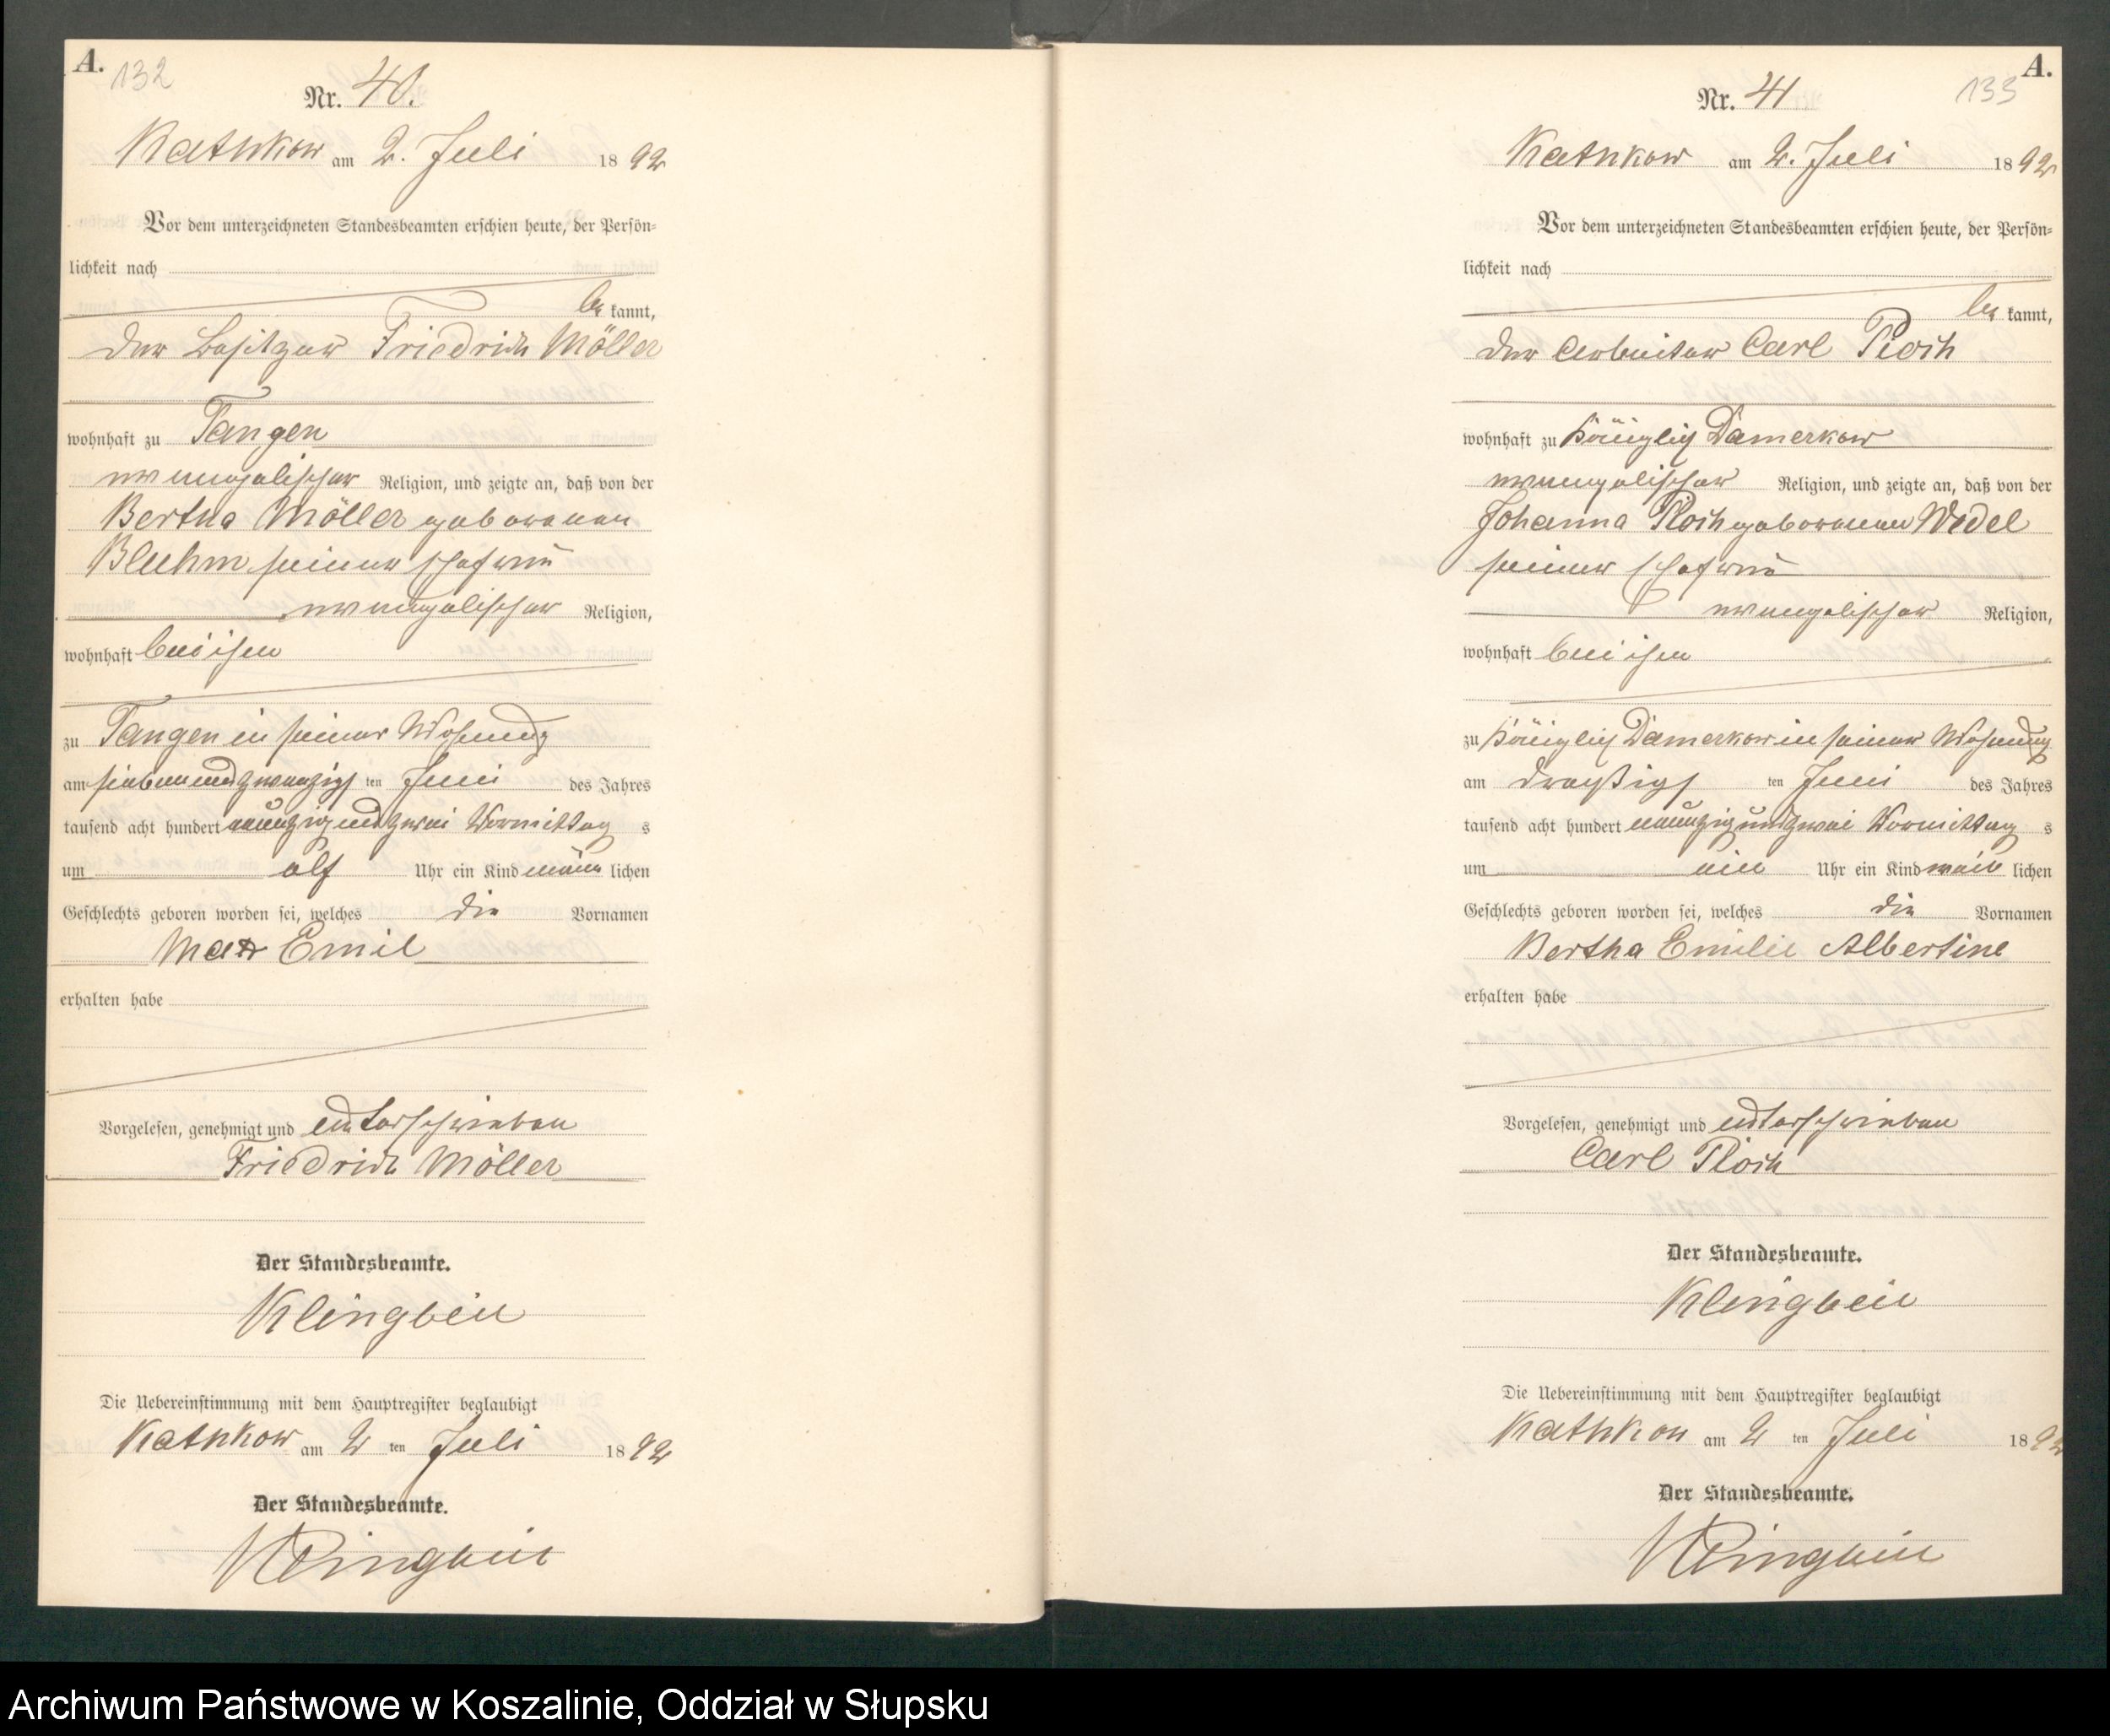 A.
132
Nr. 40.
Kathkow am 2. Juli 1892
Vor dem unterzeichneten Standesbeamten erschien heute, der Persön-
lichkeit nach
be kannt,
der Besitzer Friedrich Möller
wohnhaft zu Tangen
evangelischer Religion, und zeigte an, daß von der
Bertha Möller geborenen
Bluhm seiner Ehefrau
evangelischer Religion,
wohnhaft bei ihm
zu Tangen in seiner Wohnung
am siebenundzwanzigs ten Juni des Jahres
tausend acht hundert neunzig und zwei Vormittag s
um elf Uhr ein Kind männ lichen
Geschlechts geboren worden sei, welches die Vornamen
Max Emil
erhalten habe
Vorgelesen, genehmigt und unterschrieben
Friedrich Möller
Der Standesbeamte.
Klingbeil
Die Uebereinstimmung mit dem Hauptregister beglaubigt
Kathkow am 2 ten Juli 1892
Der Standesbeamte.
Klingbeil
A.
133
Nr. 41
Kathkow am 2. Juli 1892
Vor dem unterzeichneten Standesbeamten erschien heute, der Persön-
lichkeit nach
be kannt,
der Arbeiter Carl Ploch
wohnhaft zu Königlich Damerkow
evangelischer Religion, und zeigte an, daß von der
Johanna Ploch geborenen Wedel
seiner Ehefrau
evangelischer Religion,
wohnhaft bei ihm
zu Königlich Damerkow in seiner Wohnung
am dreißigs ten Juni des Jahres
tausend acht hundert neunzig und zwei Vormittag s
um ein Uhr ein Kind weib lichen
Geschlechts geboren worden sei, welches die Vornamen
Bertha Emilie Albertine
erhalten habe
Vorgelesen, genehmigt und unterschrieben
Carl Ploch
Der Standesbeamte.
Klingbeil
Die Uebereinstimmung mit dem Hauptregister beglaubigt
Kathkow am 2 ten Juli 1892
Der Standesbeamte.
Klingbeil
Archiwum Państwowe w Koszalinie, Oddział w Słupsku